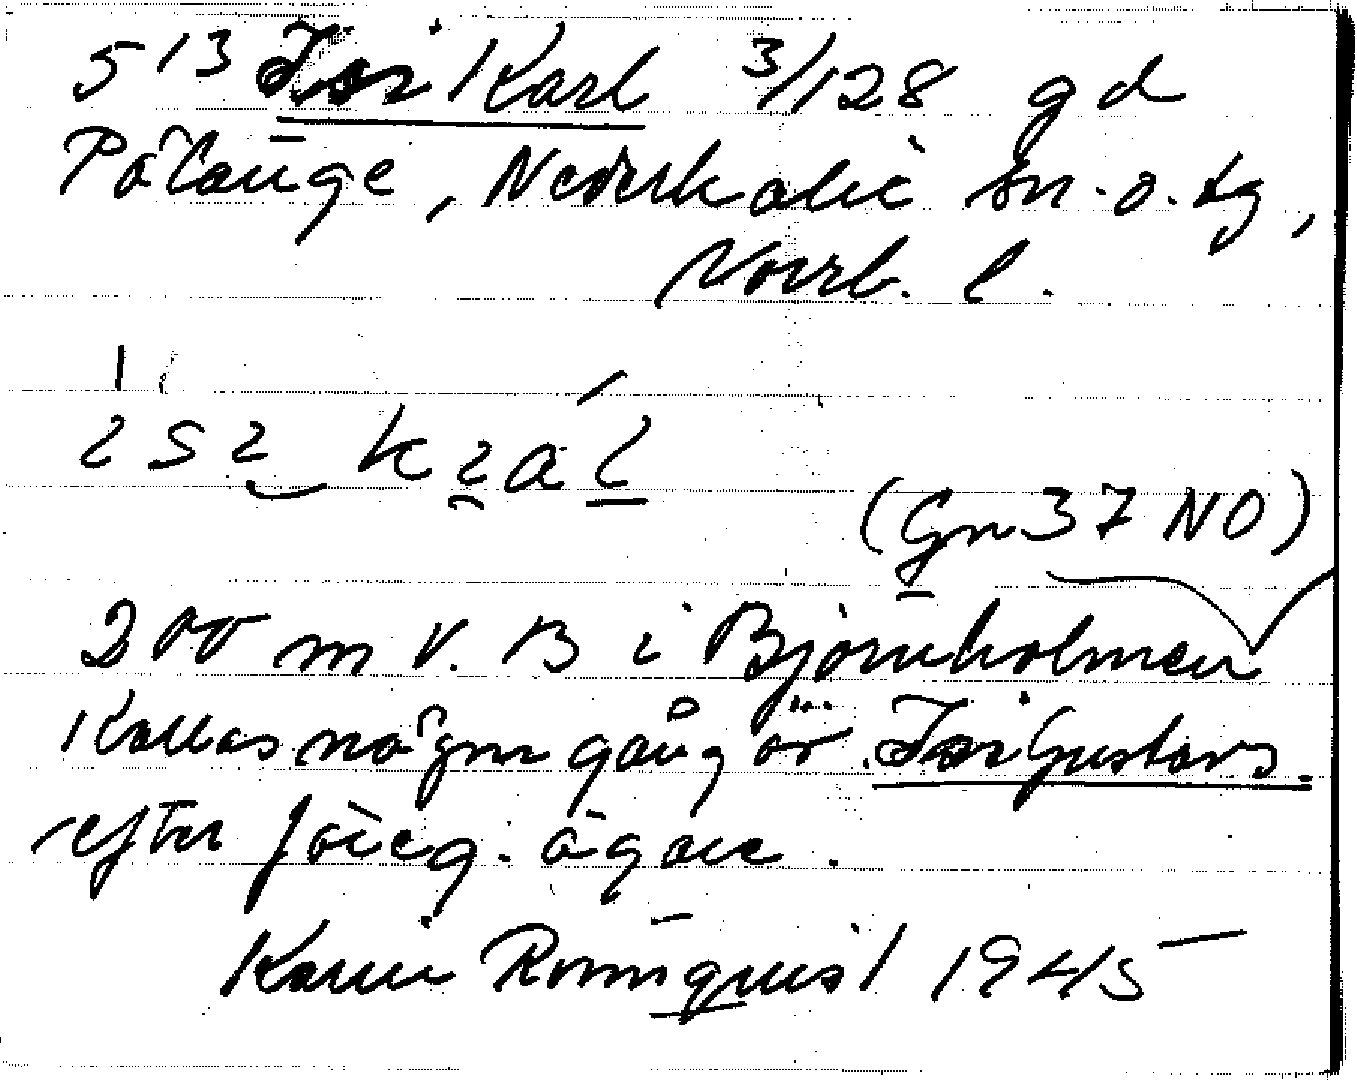 513 Isi Karl 3/128 gd
Pålänge, Nederkalix sn. o. tg,
Norrb. l.
(Gn 37 NO)
200 m v. B i Björnholmen
Kallas någon gång är Isi Gustavs.
efter föreg. ägare.
Karin Rönnquist 1945